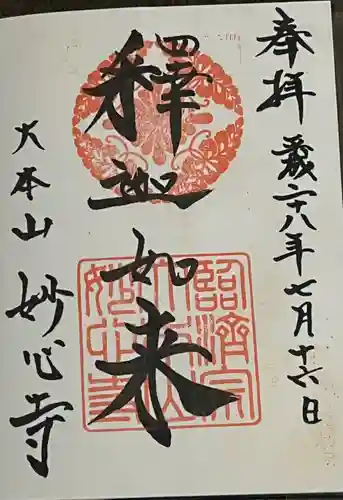 奉拝
平成二十八年七月十六日
釋迦如来
大本山 妙心寺
臨済宗
大本山
妙心寺